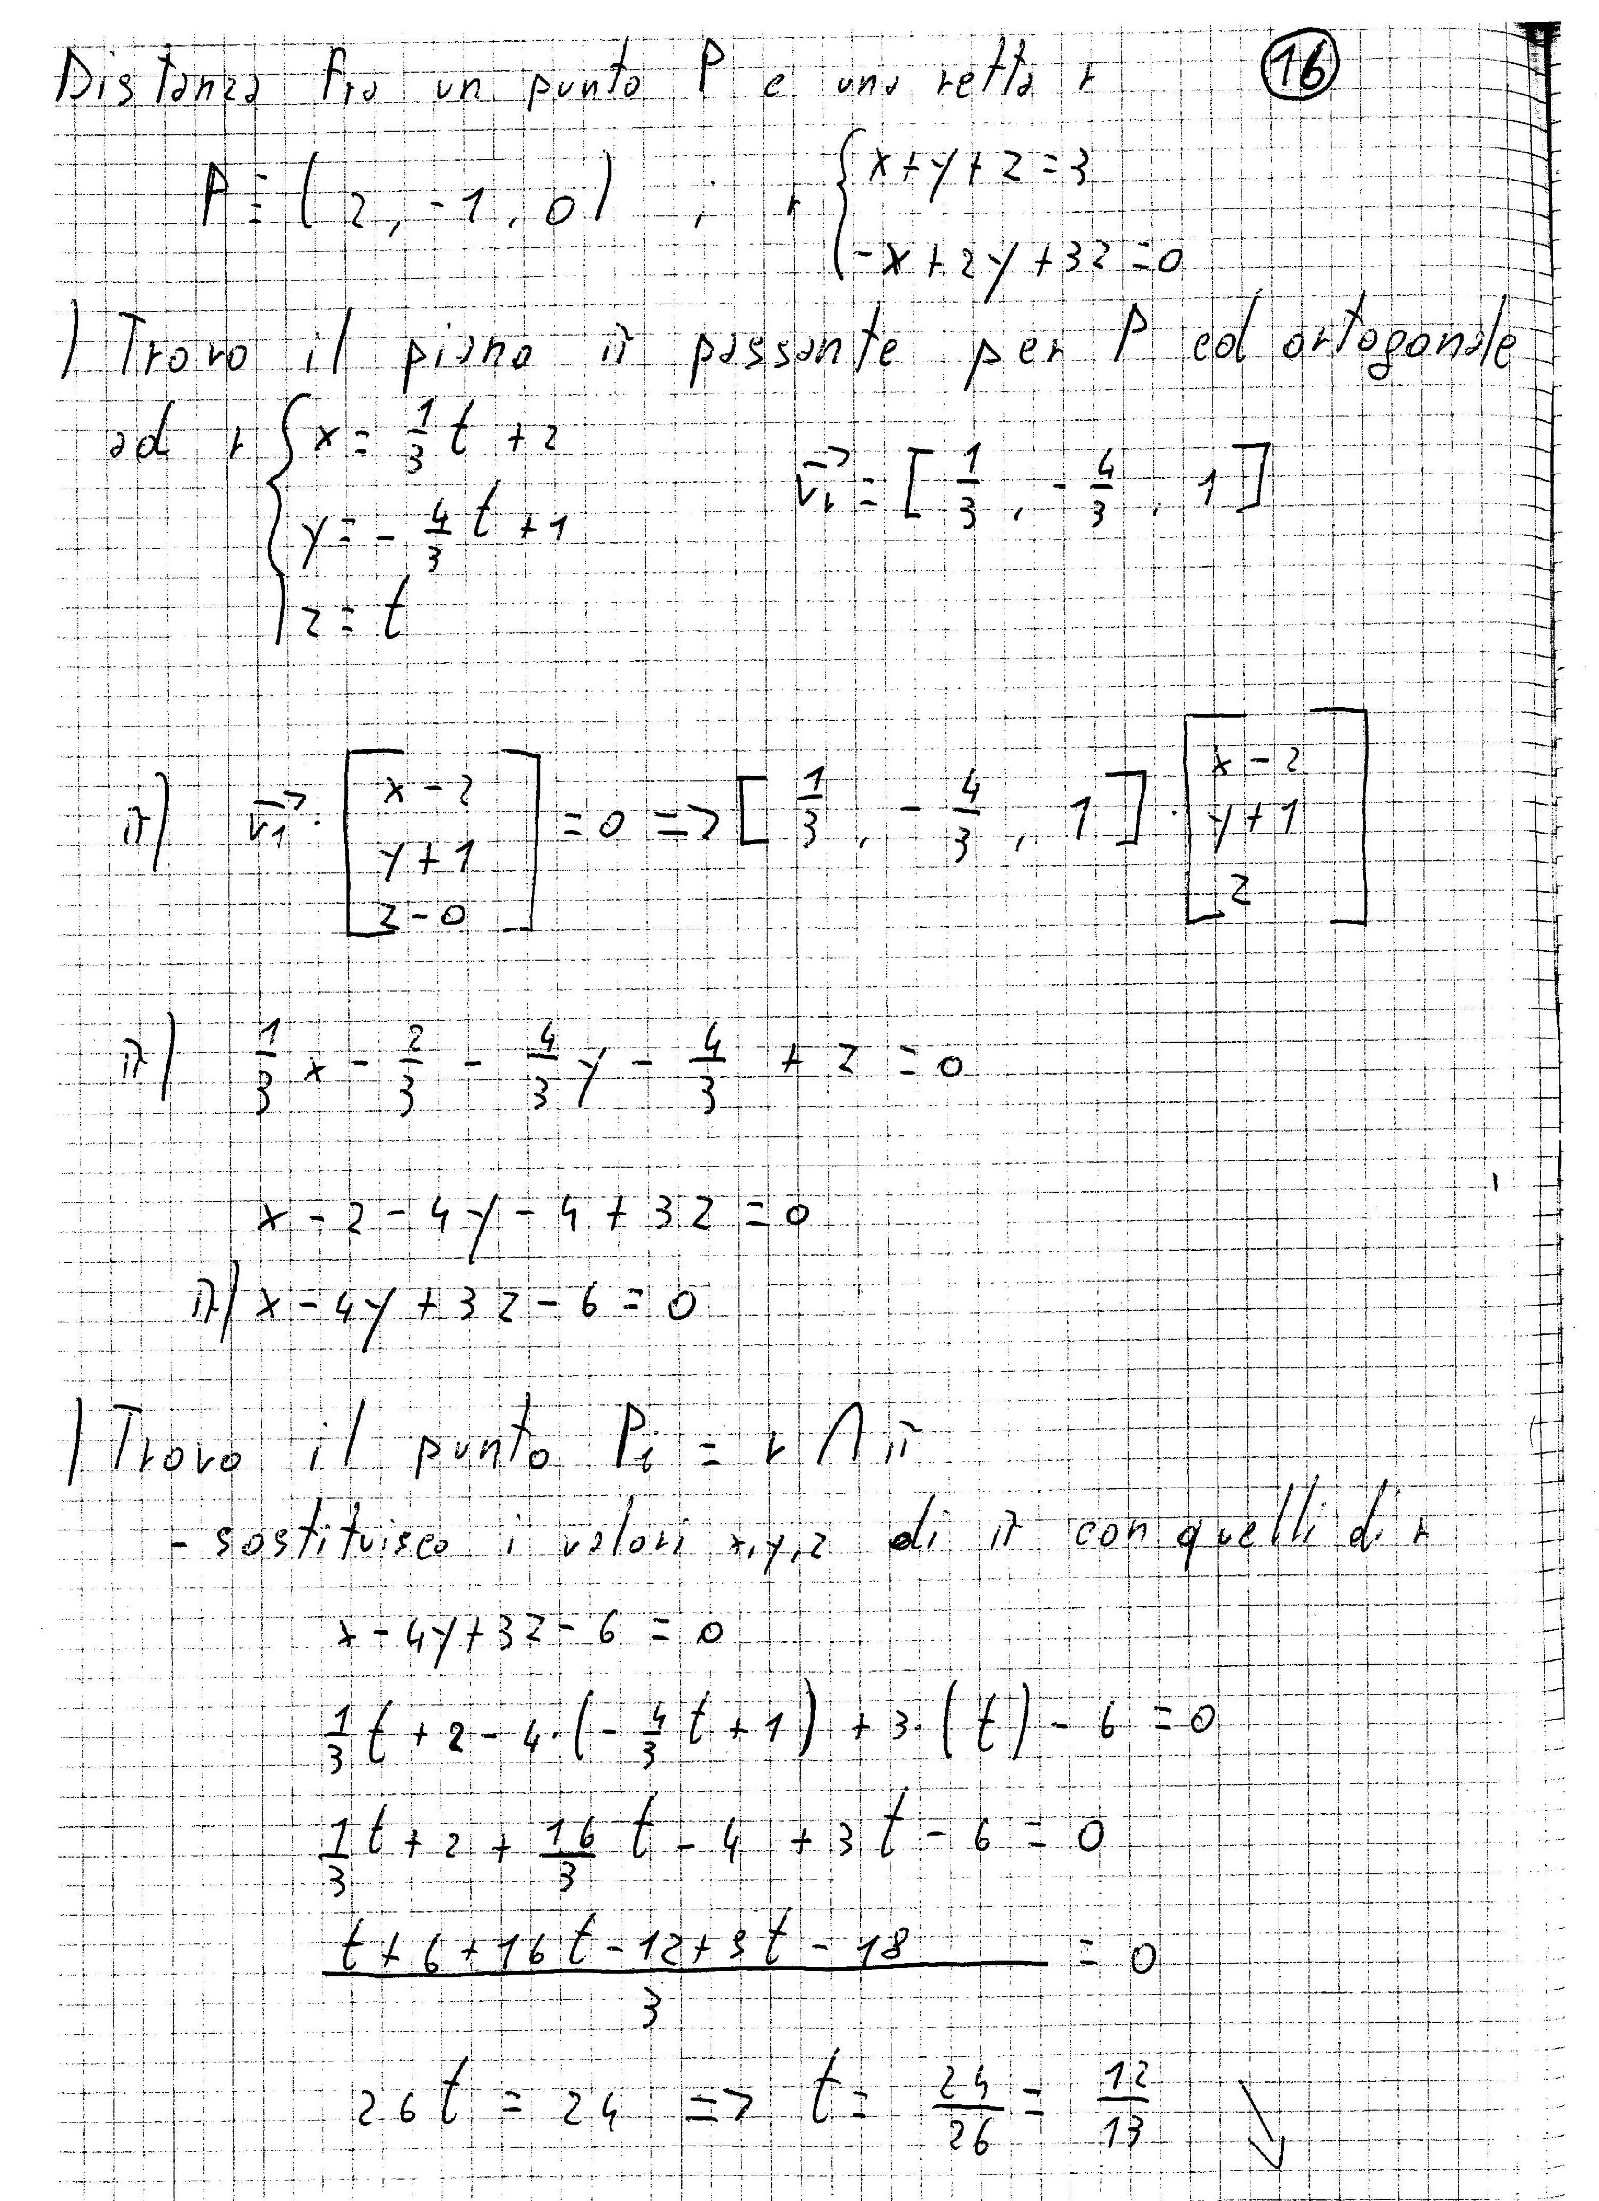 Distanza fra un punto P e una retta r
16
P ≡ (2, -1, 0) ; r { x+y+z=3
-x+2y+3z=0
) Trovo il piano π passante per P ed ortogonale
ad r { x = 1/3 t + 2
v⃗r = [1/3, -4/3, 1]
y = -4/3 t + 1
z = t
π) v⃗1 · [x-2 y+1 z-0] = 0 => [1/3, -4/3, 1] · [x-2 y+1 z]
π) 1/3 x - 2/3 - 4/3 y - 4/3 + z = 0
x - 2 - 4y - 4 + 3z = 0
π) x - 4y + 3z - 6 = 0
) Trovo il punto Pi = r ∩ π
- sostituisco i valori x,y,z di π con quelli di r
x - 4y + 3z - 6 = 0
1/3 t + 2 - 4·(-4/3 t + 1) + 3·(t) - 6 = 0
1/3 t + 2 + 16/3 t - 4 + 3t - 6 = 0
(t + 6 + 16t - 12 + 9t - 18)/3 = 0
26t = 24 => t = 24/26 = 12/13 ↘